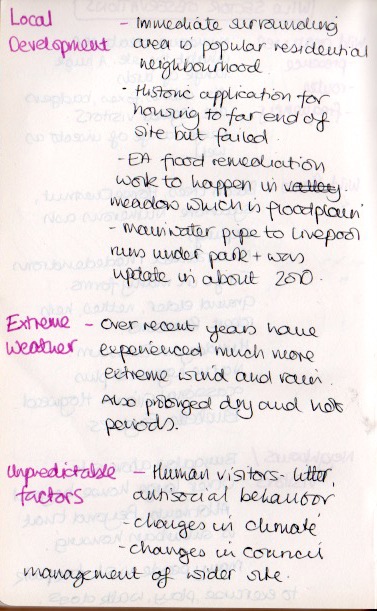 Local Development
- Immediate surrounding
area is popular residential
neighbourhood.
- Historic application for
housing to far end of
site but failed.
- EA flood remediation
work to happen in valley
meadow which is floodplain
- main water pipe to Liverpool
runs under park + was
update in about 2010.
Extreme Weather
- Over recent years have
experienced much more
extreme wind and rain.
Also prolonged dry and hot
periods.
Unpredictable factors
- Human visitors - litter,
antisocial behaviour
- changes in climate
- changes in council
management of wider site.